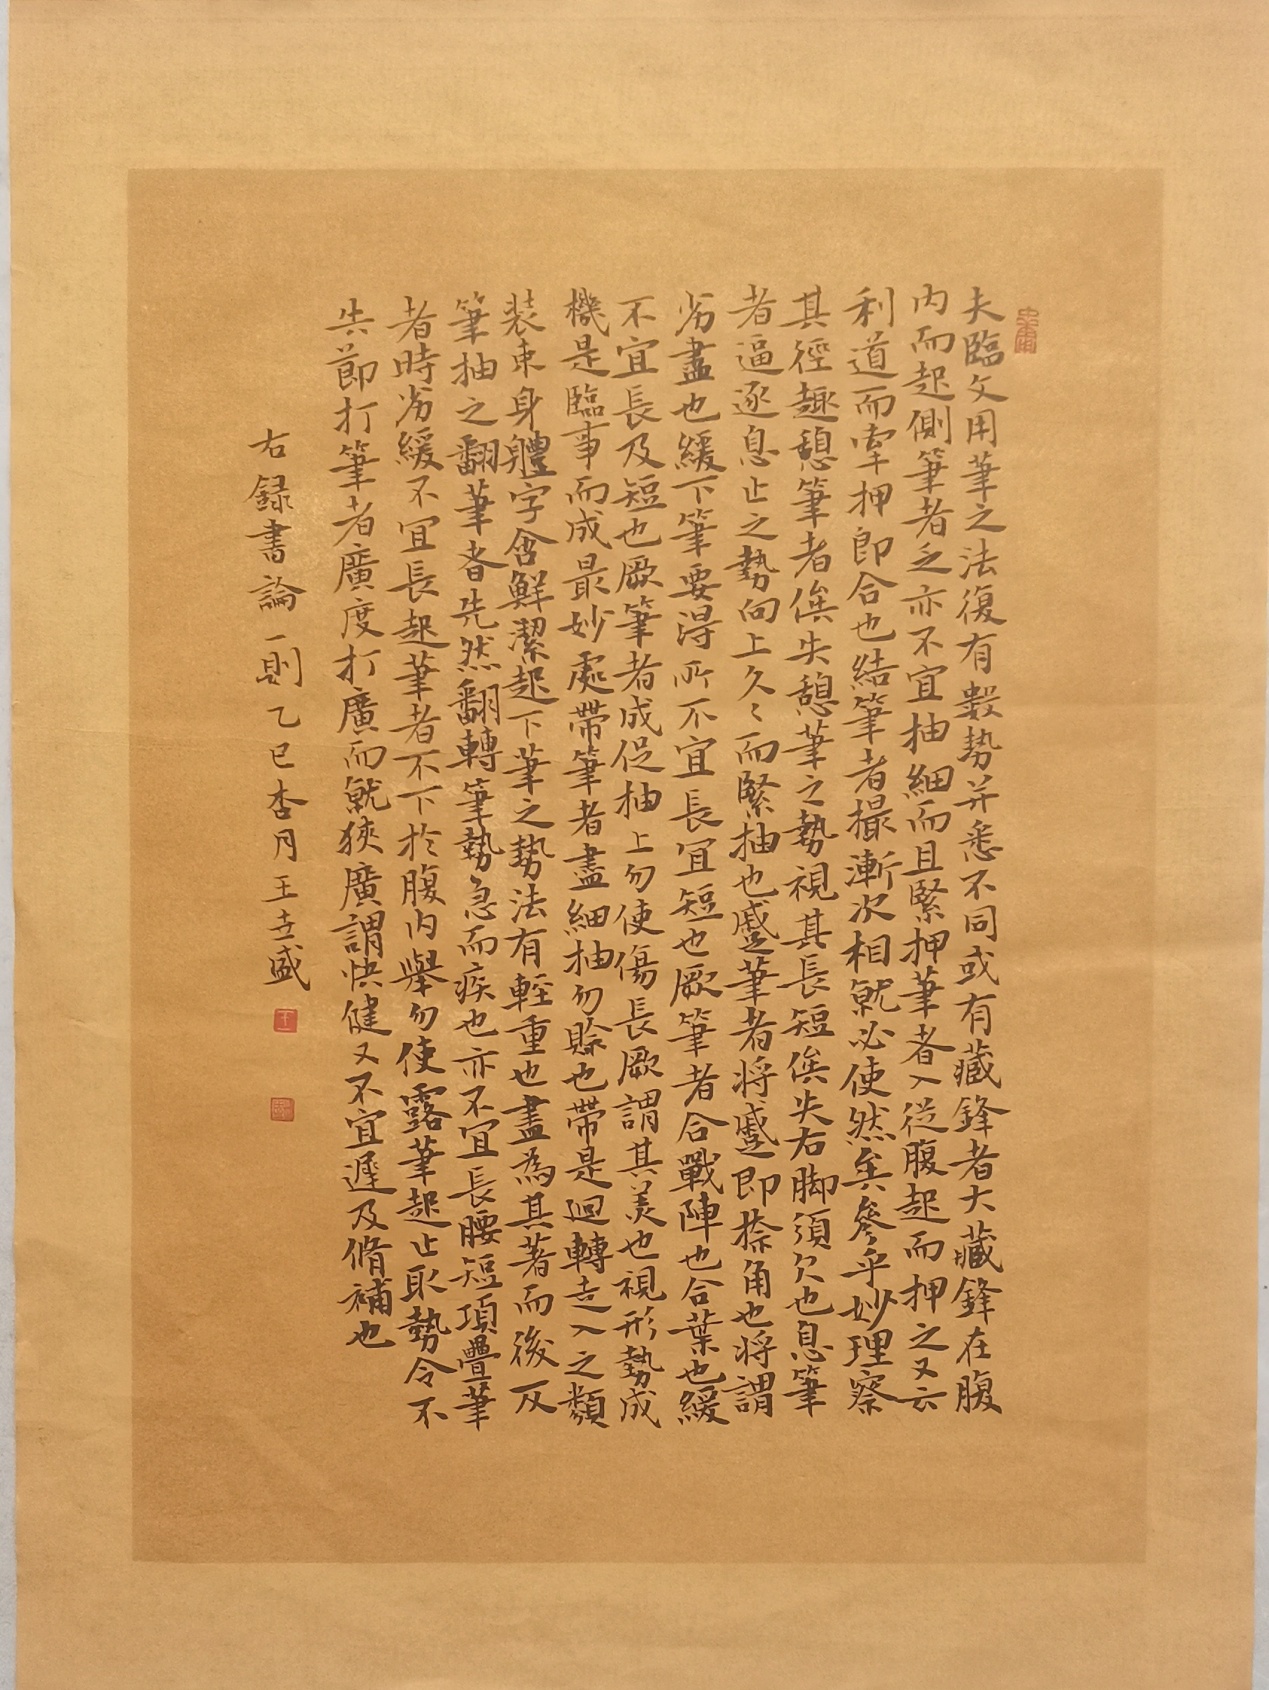 夫臨文用筆之法復有數勢并悉不同或有藏鋒者大藏鋒在腹
内而起側筆者乏亦不宜抽細而且緊押筆者入從腹起而押之又云
利道而牽押即合也結筆者撮漸次相就必使然矣參乎妙理察
其徑趣憩筆者俟失憩筆之勢視其長短俟失右脚須欠也息筆
者逼逐息止之勢向上久々而緊抽也蹙筆者將蹙即捺角也將謂
劣盡也緩下筆要得所不宜長宜短也厥筆者合戰陣也合葉也緩
不宜長及短也厥筆者成促抽上勿使傷長厥謂其美也視形勢成
機是臨事而成最妙處帶筆者盡細抽勿賒也帶是迴轉走入之類
装束身體字含鮮潔起下筆之勢法有輕重也盡為其著而後反
筆抽之翻筆者先然翻轉筆勢急而疾也亦不宜長腰短項疊筆
者時劣緩不宜長起筆者不下於腹内舉勿使露筆起止取勢令不
失節打筆者廣度打廣而就狹廣謂快健又不宜遲及脩補也
右録書論一則乙巳杏月王盛